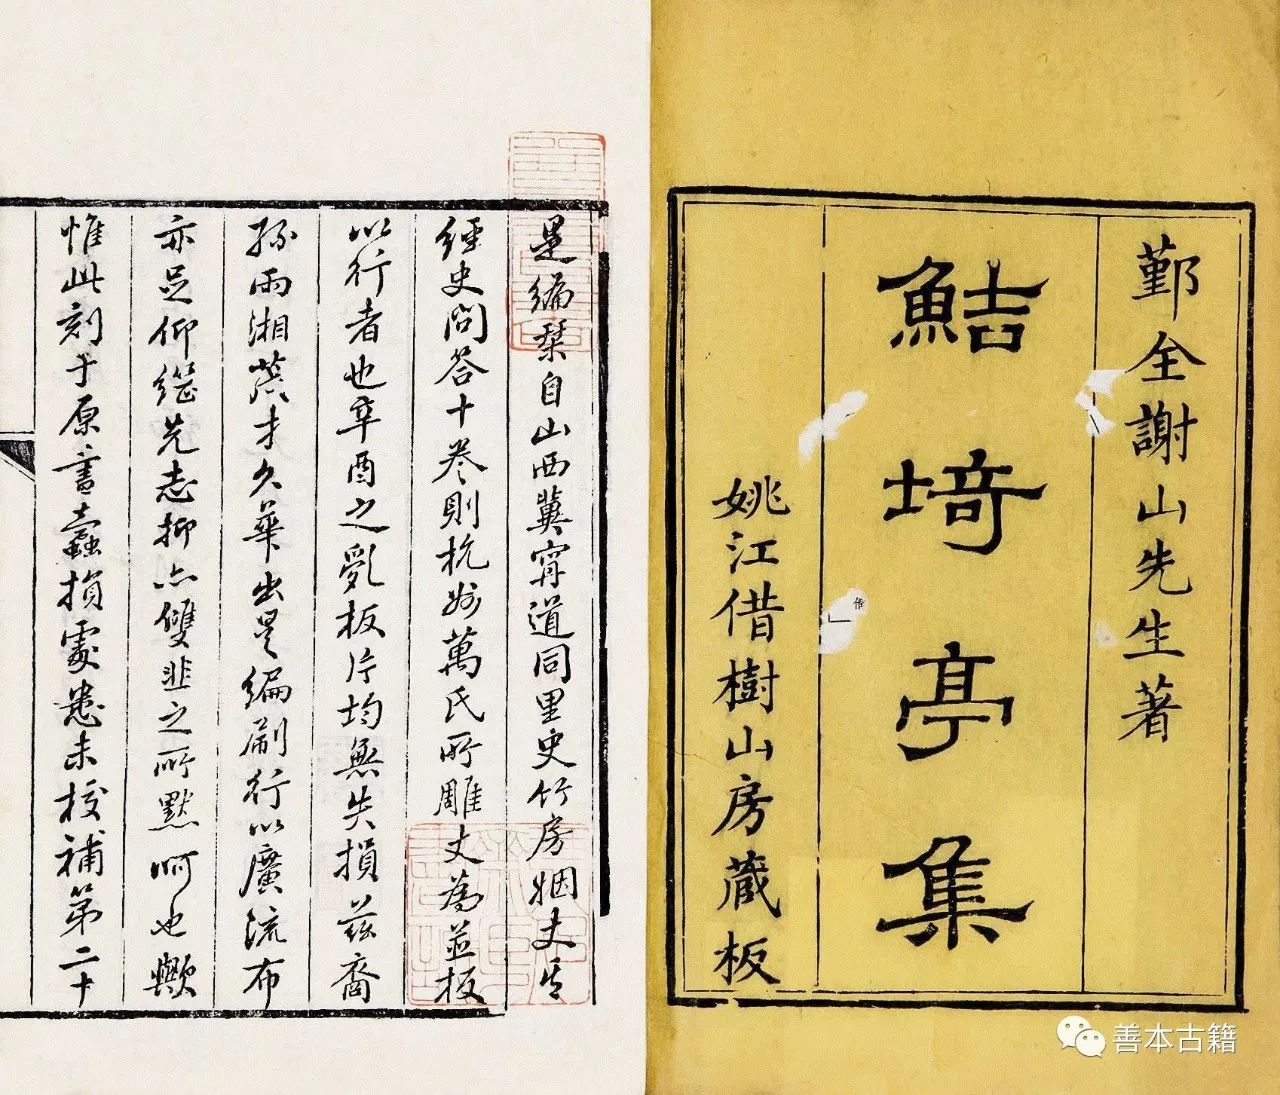 鄞全謝山先生著
鮚埼亭集
姚江借樹山房藏板
是編槧自山西冀甯道同里史竹房姻丈其
經史問答十卷則杭州萬氏所雕丈為並板
以行者也辛酉之亂板片均無失損茲裔
孫雨湘茂才久華出是編刷行以廣流布
亦足仰繼先志抑亦雙韭之所默呵也歟
惟此刻于原書蠹損處悉未校補第二十
善本古籍